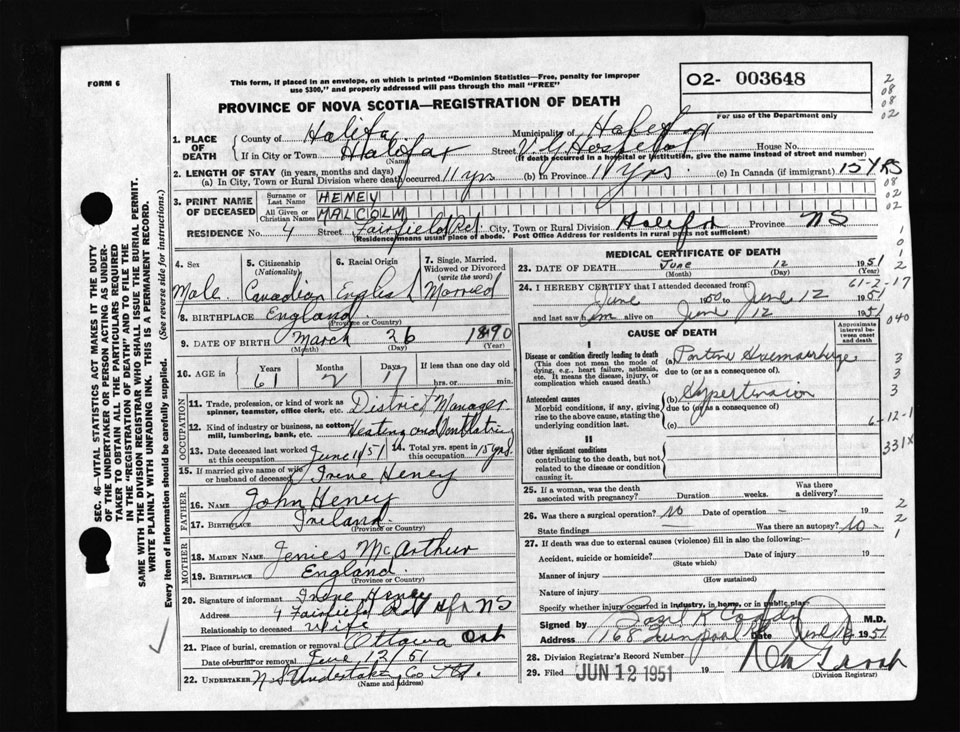 FORM 6
This form, if placed in an envelope, on which is printed "Dominion Statistics—Free, penalty for improper
use $300," and properly addressed will pass through the mail "FREE"
O2- 003648
For use of the Department only
PROVINCE OF NOVA SCOTIA—REGISTRATION OF DEATH
1. PLACE OF DEATH
County of Halifax Municipality of
If in City or Town Halifax Street V. G. Hospital House No.
(Name) (If death occurred in a hospital or institution, give the name instead of street and number)
2. LENGTH OF STAY (in years, months and days)
(a) In City, Town or Rural Division where death occurred 11 yrs (b) In Province 11 yrs. (c) In Canada (if immigrant) 15 YRS
3. PRINT NAME OF DECEASED
Surname or Last Name HENEY
All Given or Christian Names MALCOLM
RESIDENCE No. 4 Street Fairfield Rd. City, Town or Rural Division Halifax Province NS
(Residence means usual place of abode. Post Office Address for residents in rural parts not sufficient)
4. Sex 5. Citizenship (Nationality) 6. Racial Origin 7. Single, Married, Widowed or Divorced (write the word)
Male. Canadian English Married
8. BIRTHPLACE England
(Province or Country)
9. DATE OF BIRTH March 26 1890
(Month) (Day) (Year)
10. AGE in Years Months Days If less than one day old
61 2 17 hrs. or min.
OCCUPATION
11. Trade, profession or kind of work as spinner, teamster, office clerk, etc. District Manager
12. Kind of industry or business, as cotton mill, lumbering, bank, etc. Heating and Ventilating
13. Date deceased last worked at this occupation June 1/51 14. Total yrs. spent in this occupation 15 yrs.
15. If married give name of wife or husband of deceased Irene Heney
FATHER
16. NAME John Heney
17. Birthplace Ireland
(Province or Country)
MOTHER
18. MAIDEN NAME McArthur
19. BIRTHPLACE England.
(Province or Country)
20. Signature of informant Irene Heney
Address 4 Fairfield Rd Hfx NS
Relationship to deceased wife
21. Place of burial, cremation or removal Ottawa Ont
Date of burial or removal June 12/51
22. UNDERTAKER N.S Undertaking Co Ltd.
(Name and Address)
MEDICAL CERTIFICATE OF DEATH
23. DATE OF DEATH June 12 1951
(Month) (Day) (Year)
61-2-17
24. I HEREBY CERTIFY that I attended deceased from:
June 1950 to June 12 1951
and last saw him alive on June 12 1951
040
CAUSE OF DEATH
Approximate interval between onset and death
I
Disease or condition directly leading to death
(This does not mean the mode of dying, e.g., heart failure, asthenia, etc. It means the disease, injury, or complication which caused death.)
(a) Pontine Haemorrhage
due to (or as a consequence of)
Antecedent causes
Morbid conditions, if any, giving rise to the above cause, stating the underlying condition last.
(b) Hypertension
due to (or as a consequence of)
(c)
6-12-1
331X
II
Other significant conditions
contributing to the death, but not related to the disease or condition causing it.
25. If a woman, was the death associated with pregnancy? Duration weeks. Was there a delivery?
26. Was there a surgical operation? No Date of operation — 19
State findings — Was there an autopsy? No -
27. If death was due to external causes (violence) fill in also the following:—
Accident, suicide or homicide? Date of injury 19
(State which)
Manner of injury
(How sustained)
Nature of injury
Specify whether injury occurred in industry, in home, or in public place
Signed by Basil K M.D.
Address 168 Quinpool Date June 1951
28. Division Registrar's Record Number
29. Filed JUN 12 1951 19
(Division Registrar)
SEC. 46—VITAL STATISTICS ACT MAKES IT THE DUTY
OF THE UNDERTAKER OR PERSON ACTING AS UNDER-
TAKER TO OBTAIN ALL THE PARTICULARS REQUIRED
IN THE "REGISTRATION OF DEATH" AND TO FILE THE
SAME WITH THE DIVISION REGISTRAR WHO SHALL ISSUE THE BURIAL PERMIT.
WRITE PLAINLY WITH UNFADING INK. THIS IS A PERMANENT RECORD.
Every item of information should be carefully supplied. (See reverse side for instructions.)